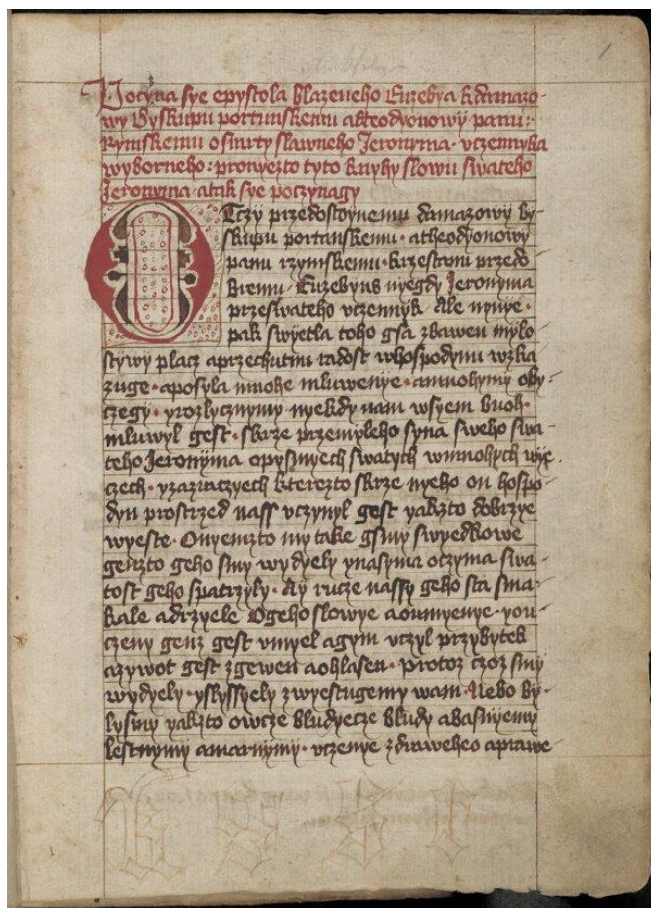 Pocyna sye epystola blazeneho Euzebya k damazo-
wy Byskupu portunskemu a k theodyonowy panu:
Rymskemu o smrty slawneho Jeronyma · uczennyka
wyborneho: pronyezto tyto knyhy slowu swateho
Jeronyma · a tak sye poczynagy
Otczy przedostoynemu damazowy by-
skupu portanskemu · a theodyonowy
panu rzymskemu · krzestani przedo
Euzebyus nyegdy Jeronyma
przeswateho uczennyk · Ale nynye ·
pak swyetla toho gsa zbawen mylo
stywy placz a przechutnu radost w hospodynu wzka
zuge · a posyla mnohe mluwenye · a mnohymy oby:
czegy · y rozlycznymy nyekdy nam wsyem buoh ·
mluwyl gest · skrze przemyleho syna sweho swa-
teho Jeronyma o pysmyech swatych w mnohych wye
czech · y zazraczyech kterezto skrze nyeho on hospo-
dyn prostrzed nass uczynyl gest yakzto dobrzye
wyeste · O nyemzto my take gsmy swyedkowe
genzto geho smy wydyely y nasyma oczyma swa-
tost geho spatrzyly · Ay rucze nassy geho sta sma-
kale a drzyele O geho slowye a o umyenye · 
czeny genz gest umyel a gym uczyl przybytek
a zywot gest zgewen a ohlasen · Protoz czoz smy
wydyely · y slyssyely zwyestugemy wam · Nebo by-
lysmy yakzto owcze bludyecze bludy a basnyemy
lestnymy a marnymy · uczenye zdraweheo a prawe